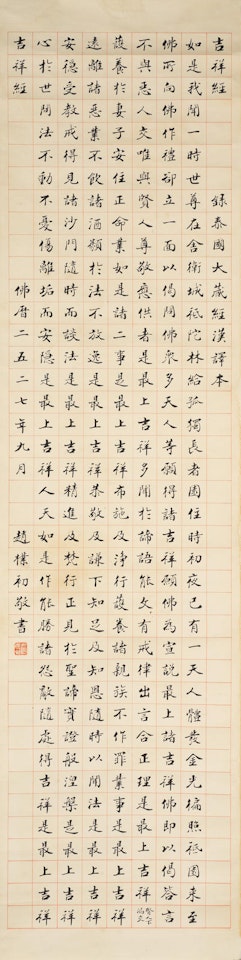 吉祥經　錄泰國大藏經漢譯本
如是我聞一時世尊在舍衛城祇陀林給孤獨長者園住時初夜已有一天人體黃金光徧照祇園來至
佛所向佛作禮卻立一面以偈問佛眾多天人等願得諸吉祥願佛為宣說最上諸吉祥佛即以偈答言
不與惡人交唯與賢人尊敬應供者是最上吉祥多聞於諦語能文有戒律出言合正理是最上吉祥賢人下漏交
護養於妻子安住正命業如是諸二事是最上吉祥布施及淨行護養諸親族不作罪業事是最上吉祥
遠離諸惡業不飲諸酒類於法不放逸是最上吉祥恭敬及謙下知足及知恩隨時以聞法是最上吉祥
安隱受教戒得見諸沙門隨時而談法是最上吉祥精進及梵行正見於聖諦實證般涅槃是最上吉祥
心於世間法不動不憂傷離垢而安隱是最上吉祥人天如是作能勝諸怨敵隨處得吉祥是最上吉祥
吉祥經　佛曆二五二七年九月　趙樸初敬書